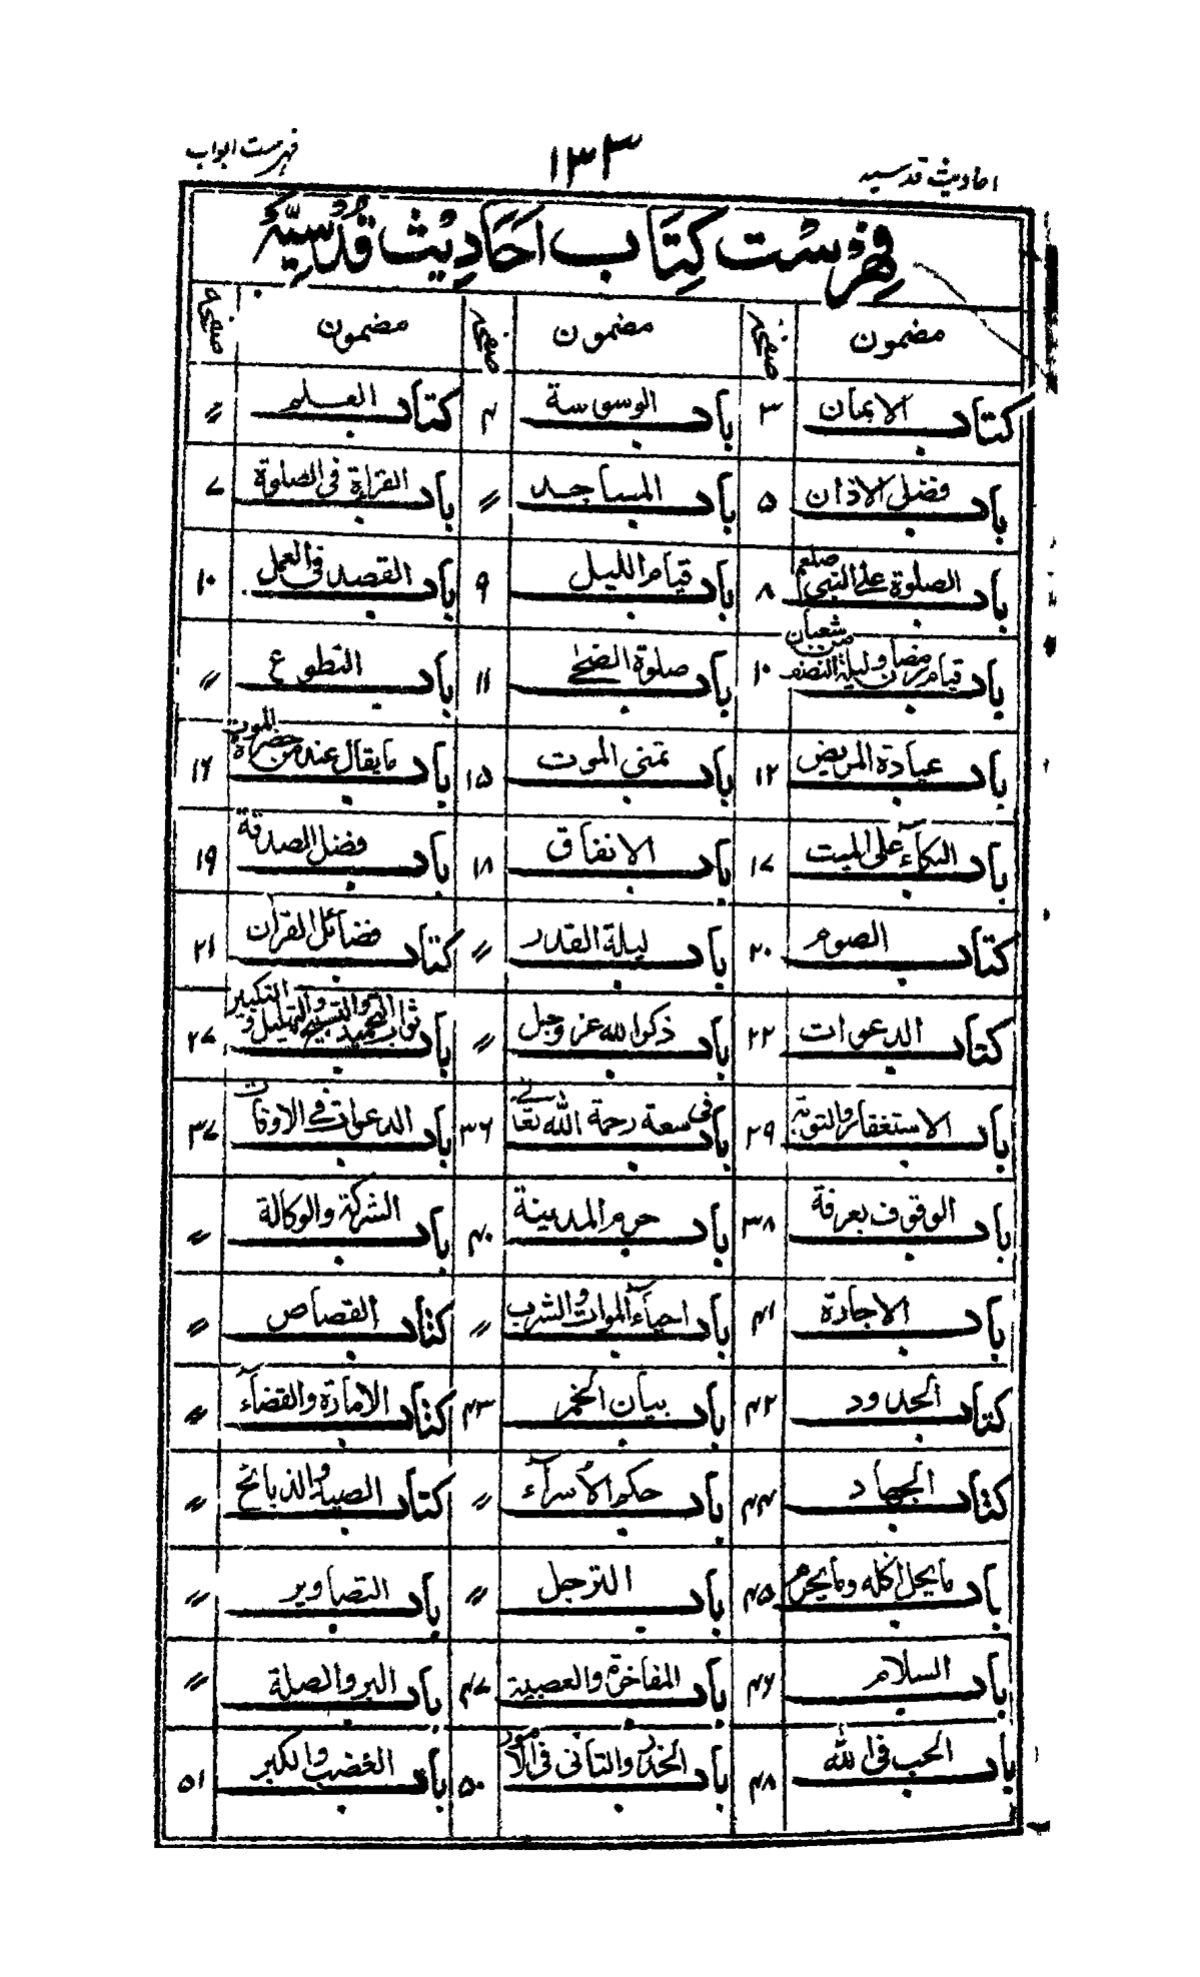 احادیث قدسیہ ۱۳۳ فہرست ابواب
فِهْرِسْت كِتَاب اَحَادِيْث قُدْسِيَّة
مضمون صفحہ مضمون صفحہ مضمون صفحہ
كتاب الايمان ۳ باب الوسوسة ۴ كتاب العلم 〃
باب فضل الاذان ۵ باب المساجد 〃 باب القراءة فى الصلوة ۷
باب الصلوة على النبي صلعم ۸ باب قيام الليل ۹ باب القصد فى العمل ۱۰
باب قيام رمضان وليلة النصف من شعبان ۱۰ باب صلوة الضحى ۱۱ باب التطوع 〃
باب عيادة المريض ۱۲ باب تمنى الموت ۱۵ باب مايقال عند من حضرة الموت ۱۶
باب البكاء على الميت ۱۷ باب الانفاق ۱۸ باب فضل الصدقة ۱۹
كتاب الصوم ۲۰ باب ليلة القدر 〃 كتاب فضائل القرآن ۲۱
كتاب الدعوات ۲۲ باب ذكر الله عز وجل 〃 باب ثواب التحميد والتسبيح والتهليل والتكبير ۲۷
باب الاستغفار والتوبة ۲۹ باب فى سعة رحمة الله تعالى ۳۶ باب الدعوات فى الاوقات ۳۷
باب الوقوف بعرفة ۳۸ باب حرم المدينة ۴۰ باب الشركة والوكالة 〃
باب الاجارة ۴۱ باب احياء الموات والشرب 〃 كتاب القصاص 〃
كتاب الحدود ۴۲ باب بيان الخمر ۴۳ كتاب الامارة والقضاء 〃
كتاب الجهاد ۴۴ باب حكم الأسراء 〃 كتاب الصيد والذبائح 〃
باب مايحل اكله ومايحرم ۴۵ باب الترجل 〃 باب التصاوير 〃
باب السلام ۴۶ باب المفاخرة والعصبية ۴۷ باب البر والصلة 〃
باب الحب فى الله ۴۸ باب الحذر والتأنى فى الامور ۵۰ باب الغضب والكبر ۵۱